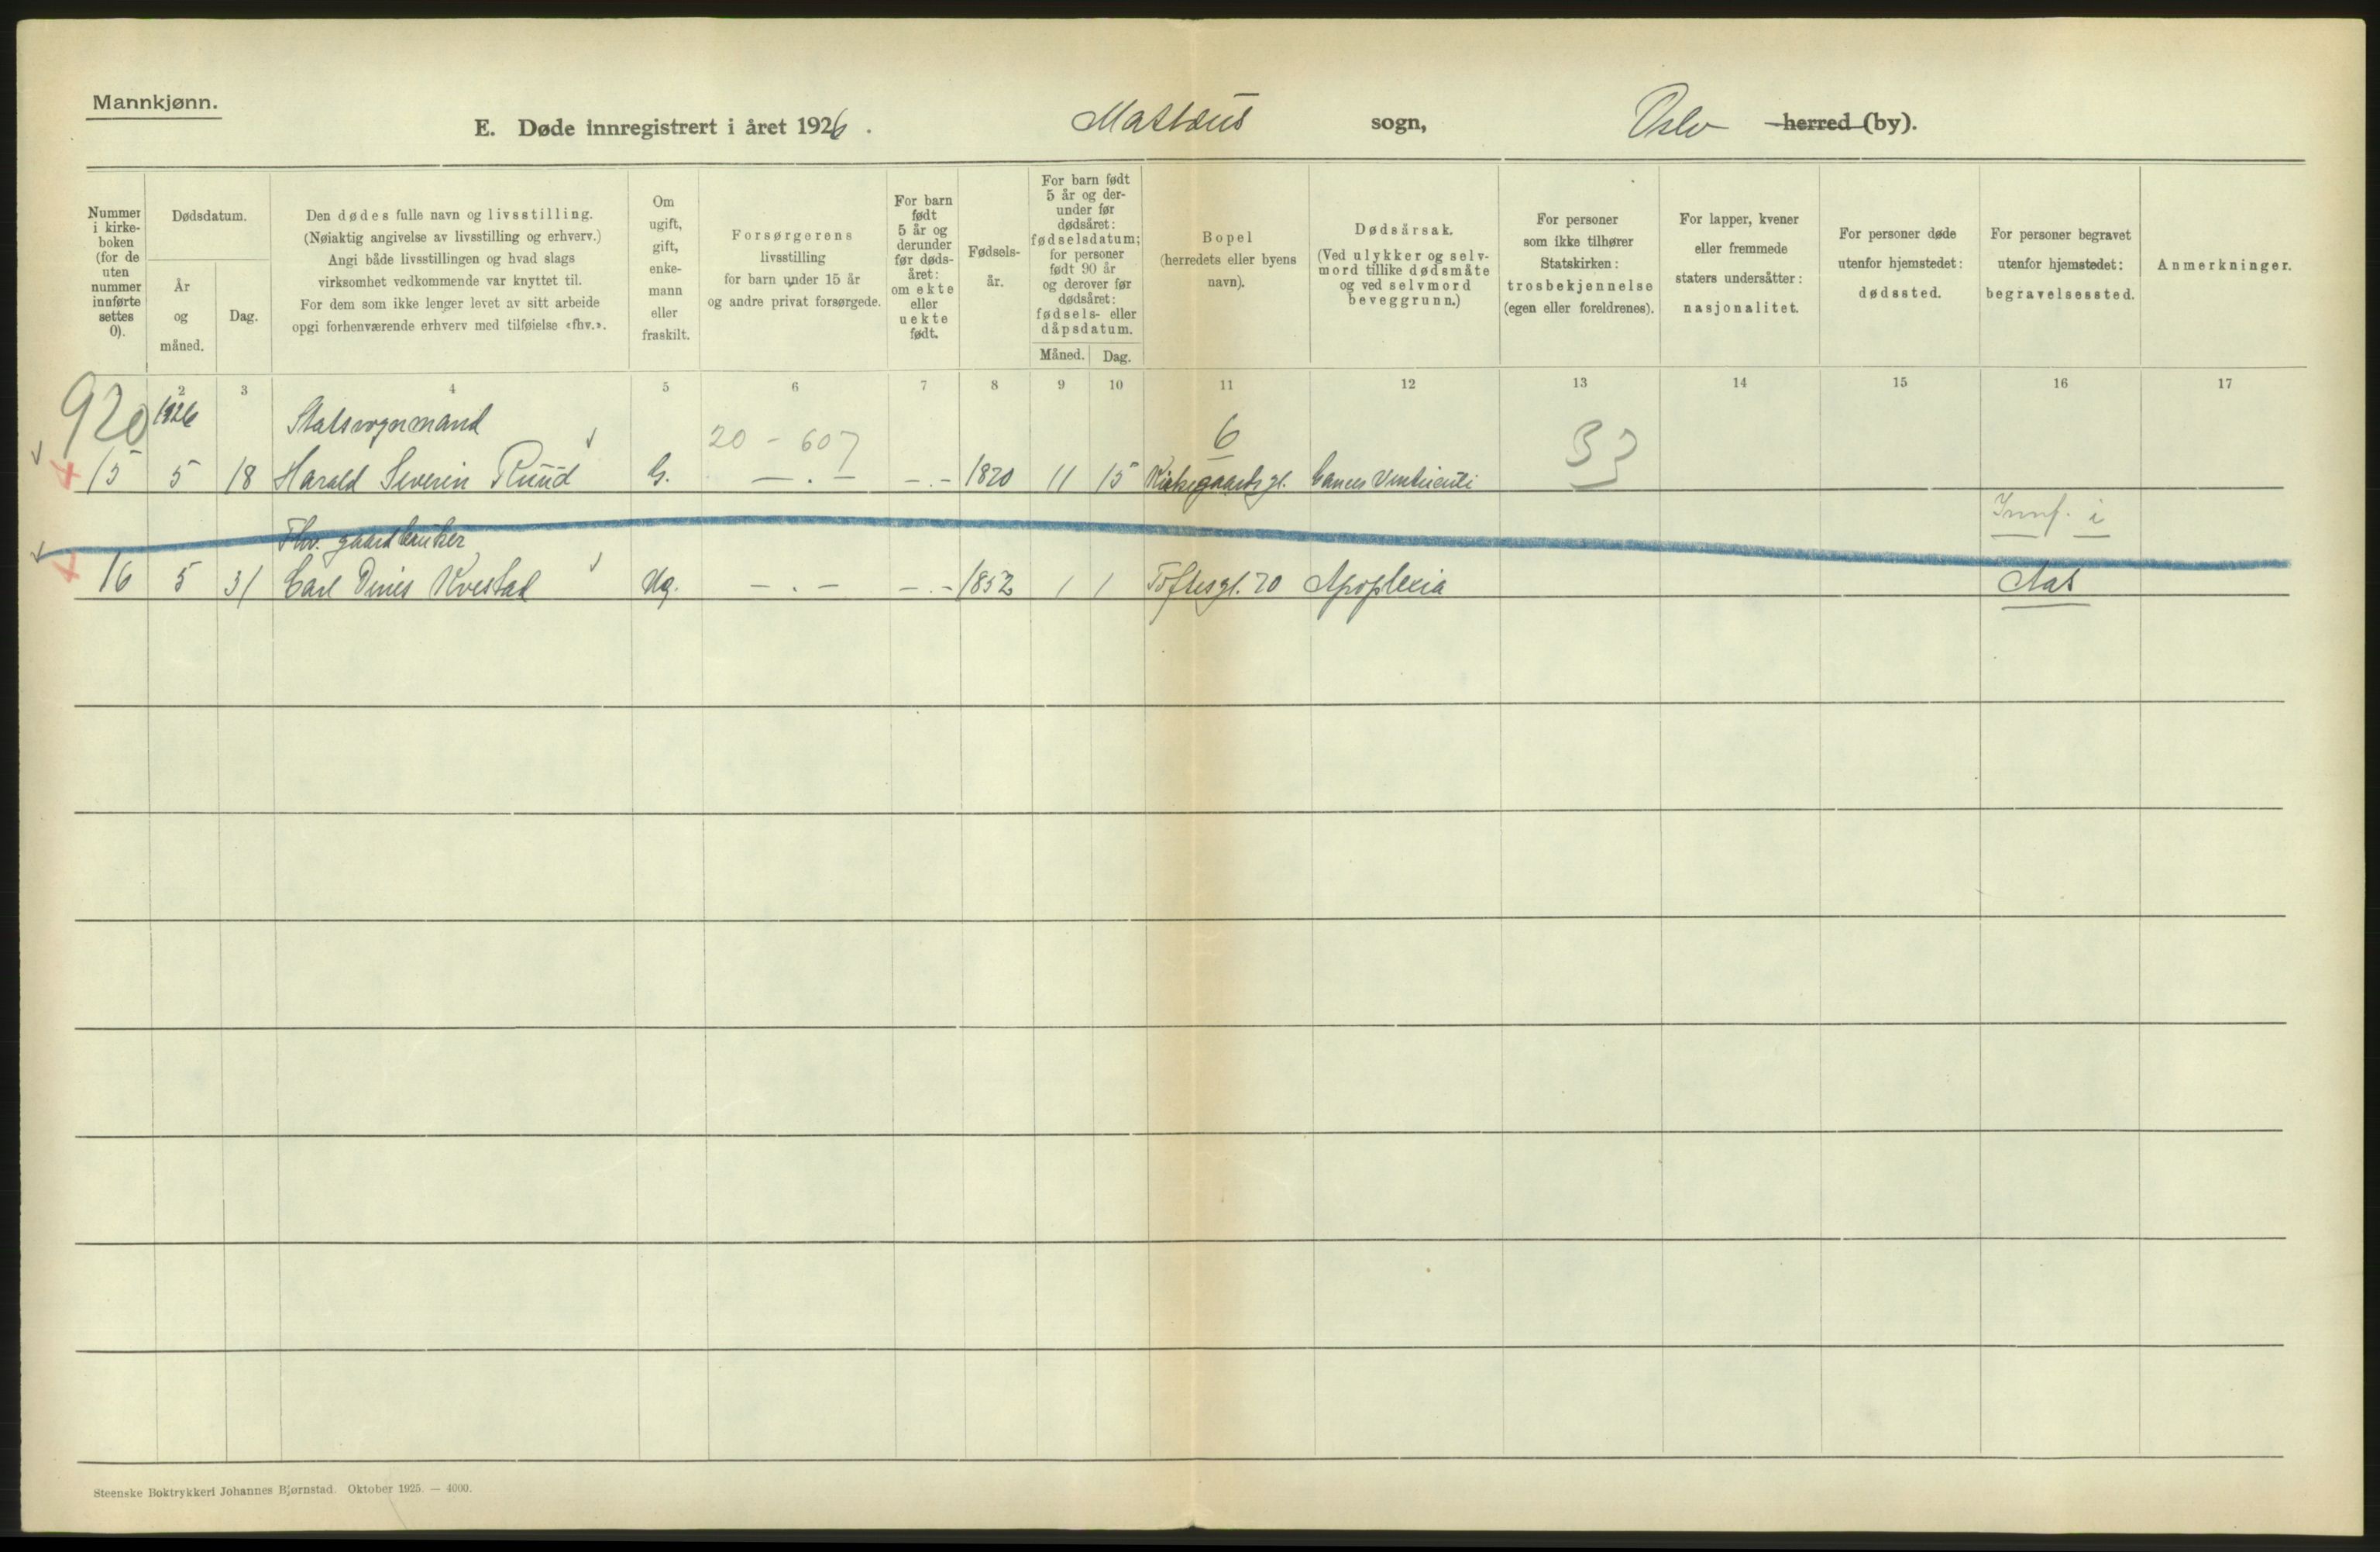 Mannkjønn.
E. Døde innregistrert i året 1926.
Mathæus sogn,
Oslo herred (by).
Nummer
i kirke-
boken
(for de
uten
nummer
innførte
settes
0).
Dødsdatum.
År
og
måned.
Dag.
Den dødes fulle navn og livsstilling.
(Nøiaktig angivelse av livsstilling og erhverv.)
Angi både livsstillingen og hvad slags
virksomhet vedkommende var knyttet til.
For dem som ikke lenger levet av sitt arbeide
opgi forhenværende erhverv med tilføielse «fhv.».
Om
ugift,
gift,
enke-
mann
eller
fraskilt.
Forsørgerens
livsstilling
for barn under 15 år
og andre privat forsørgede.
For barn
født
5 år og
derunder
før døds-
året:
om ekte
eller
uekte
født.
Fødsels-
år.
For barn født
5 år og der-
under før
dødsåret:
fødselsdatum;
for personer
født 90 år
og derover før
dødsåret:
fødsels- eller
dåpsdatum.
Måned. Dag.
Bopel
(herredets eller byens
navn).
Dødsårsak.
(Ved ulykker og selv-
mord tillike dødsmåte
og ved selvmord
beveggrunn.)
For personer
som ikke tilhører
Statskirken:
trosbekjennelse
(egen eller foreldrenes).
For lapper, kvener
eller fremmede
staters undersåtter:
nasjonalitet.
For personer døde
utenfor hjemstedet:
dødssted.
For personer begravet
utenfor hjemstedet:
begravelsessted.
Anmerkninger.
2 3 4 5 6 7 8 9 10 11 12 13 14 15 16 17
920 1926 20 - 607 6 53
15 5 18 Harald Severin Ruud G. — . — — . — 1870 11 15 Kirkegaardsgt. Cancer Ventriculi
Fhv. gaardbruker Innf. i
16 5 31 Carl Dines Kvestad Ug. — . — — . — 1852 1 1 Toftesgt. 70 Apoplexia Aas
Steenske Boktrykkeri Johannes Bjørnstad. Oktober 1925. — 4000.